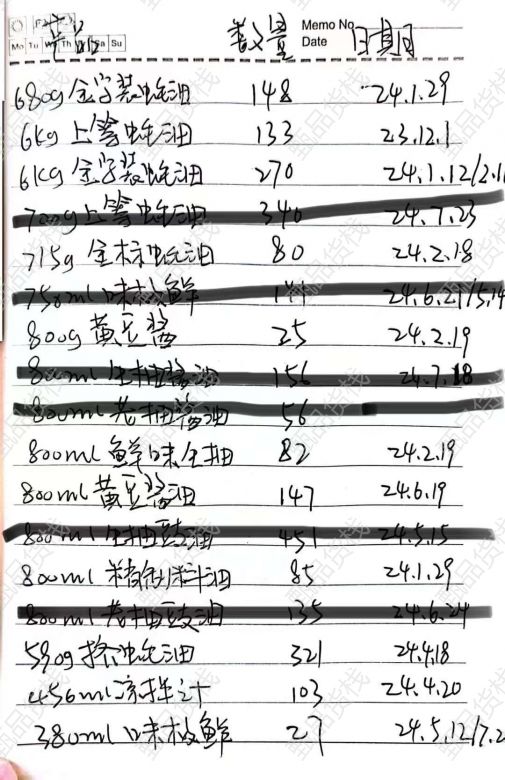 Memo No.
Mo Tu We Th Fr Sa Su
Date
产品 数量 日期
680g 金字装蚝油 148 24.1.29
6kg 上等蚝油 133 23.12.1
6kg 金字装蚝油 270 24.1.12/2.1
700g 上等蚝油 340 24.7.23
715g 金标蚝油 80 24.2.18
750ml 味极鲜 24.6.21/5.14
800g 黄豆酱 25 24.2.19
800ml 生抽酱油 156 24.7.18
800ml 老抽酱油 56
800ml 鲜味生抽 82 24.2.19
800ml 黄豆酱油 147 24.6.19
800ml 生抽豉油 451 24.5.15
800ml 精制料油 85 24.1.29
800ml 老抽豉油 135 24.6.24
590g 挤蚝油 321 24.4.18
456ml 凉拌汁 103 24.4.20
380ml 味极鲜 27 24.5.12/7.2
臻品货栈